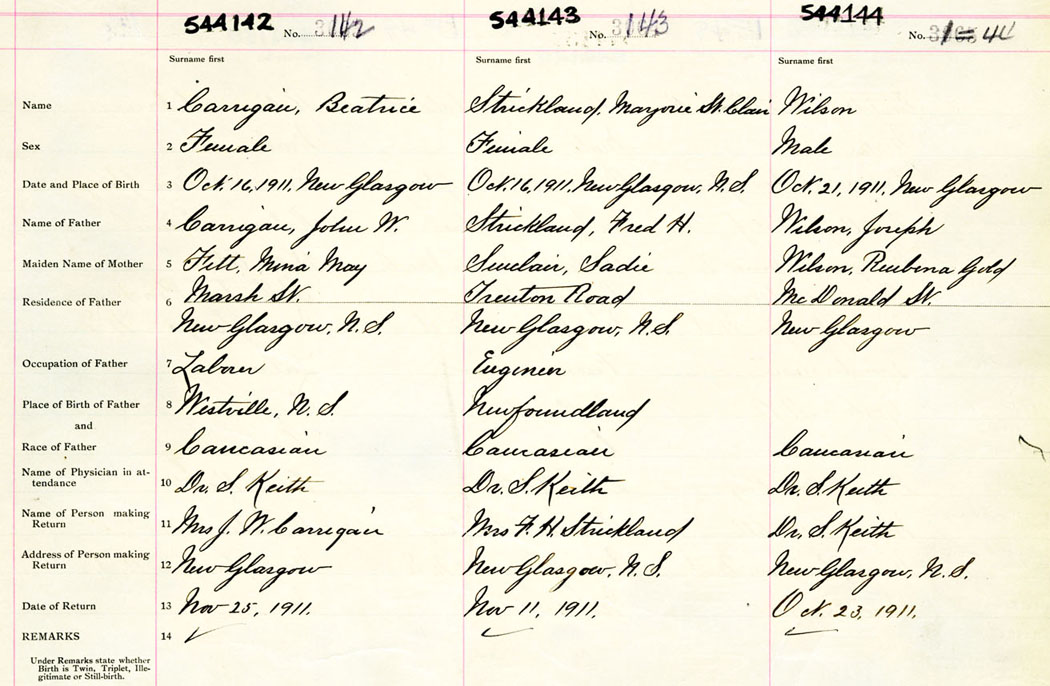 544142 544143 544144
No. 142 No. 143 No. 44
Surname first Surname first Surname first
Name 1 Carrigan, Beatrice Strickland, Marjorie St. Clair Wilson
Sex 2 Female Female Male
Date and Place of Birth 3 Oct. 16, 1911, New Glasgow Oct. 16, 1911, New Glasgow, N.S. Oct. 21, 1911, New Glasgow
Name of Father 4 Carrigan, John W. Strickland, Fred H. Wilson, Joseph
Maiden Name of Mother 5 Fitt, Mina May Sinclair, Sadie Wilson, Reubena Gold
Residence of Father 6 Marsh St. Trenton Road McDonald St.
New Glasgow, N.S. New Glasgow, N.S. New Glasgow
Occupation of Father 7 Laborer Engineer
Place of Birth of Father 8 Westville, N.S. Newfoundland
and
Race of Father 9 Caucasian Caucasian Caucasian
Name of Physician in at-
tendance 10 Dr. S. Keith Dr. S. Keith Dr. S. Keith
Name of Person making
Return 11 Mrs J. W. Carrigan Mrs F. H. Strickland Dr. S. Keith
Address of Person making
Return 12 New Glasgow New Glasgow, N.S. New Glasgow, N.S.
Date of Return 13 Nov 25, 1911. Nov 11, 1911. Oct. 23, 1911.
REMARKS 14
Under Remarks state whether
Birth is Twin, Triplet, Ille-
gitimate or Still-birth.